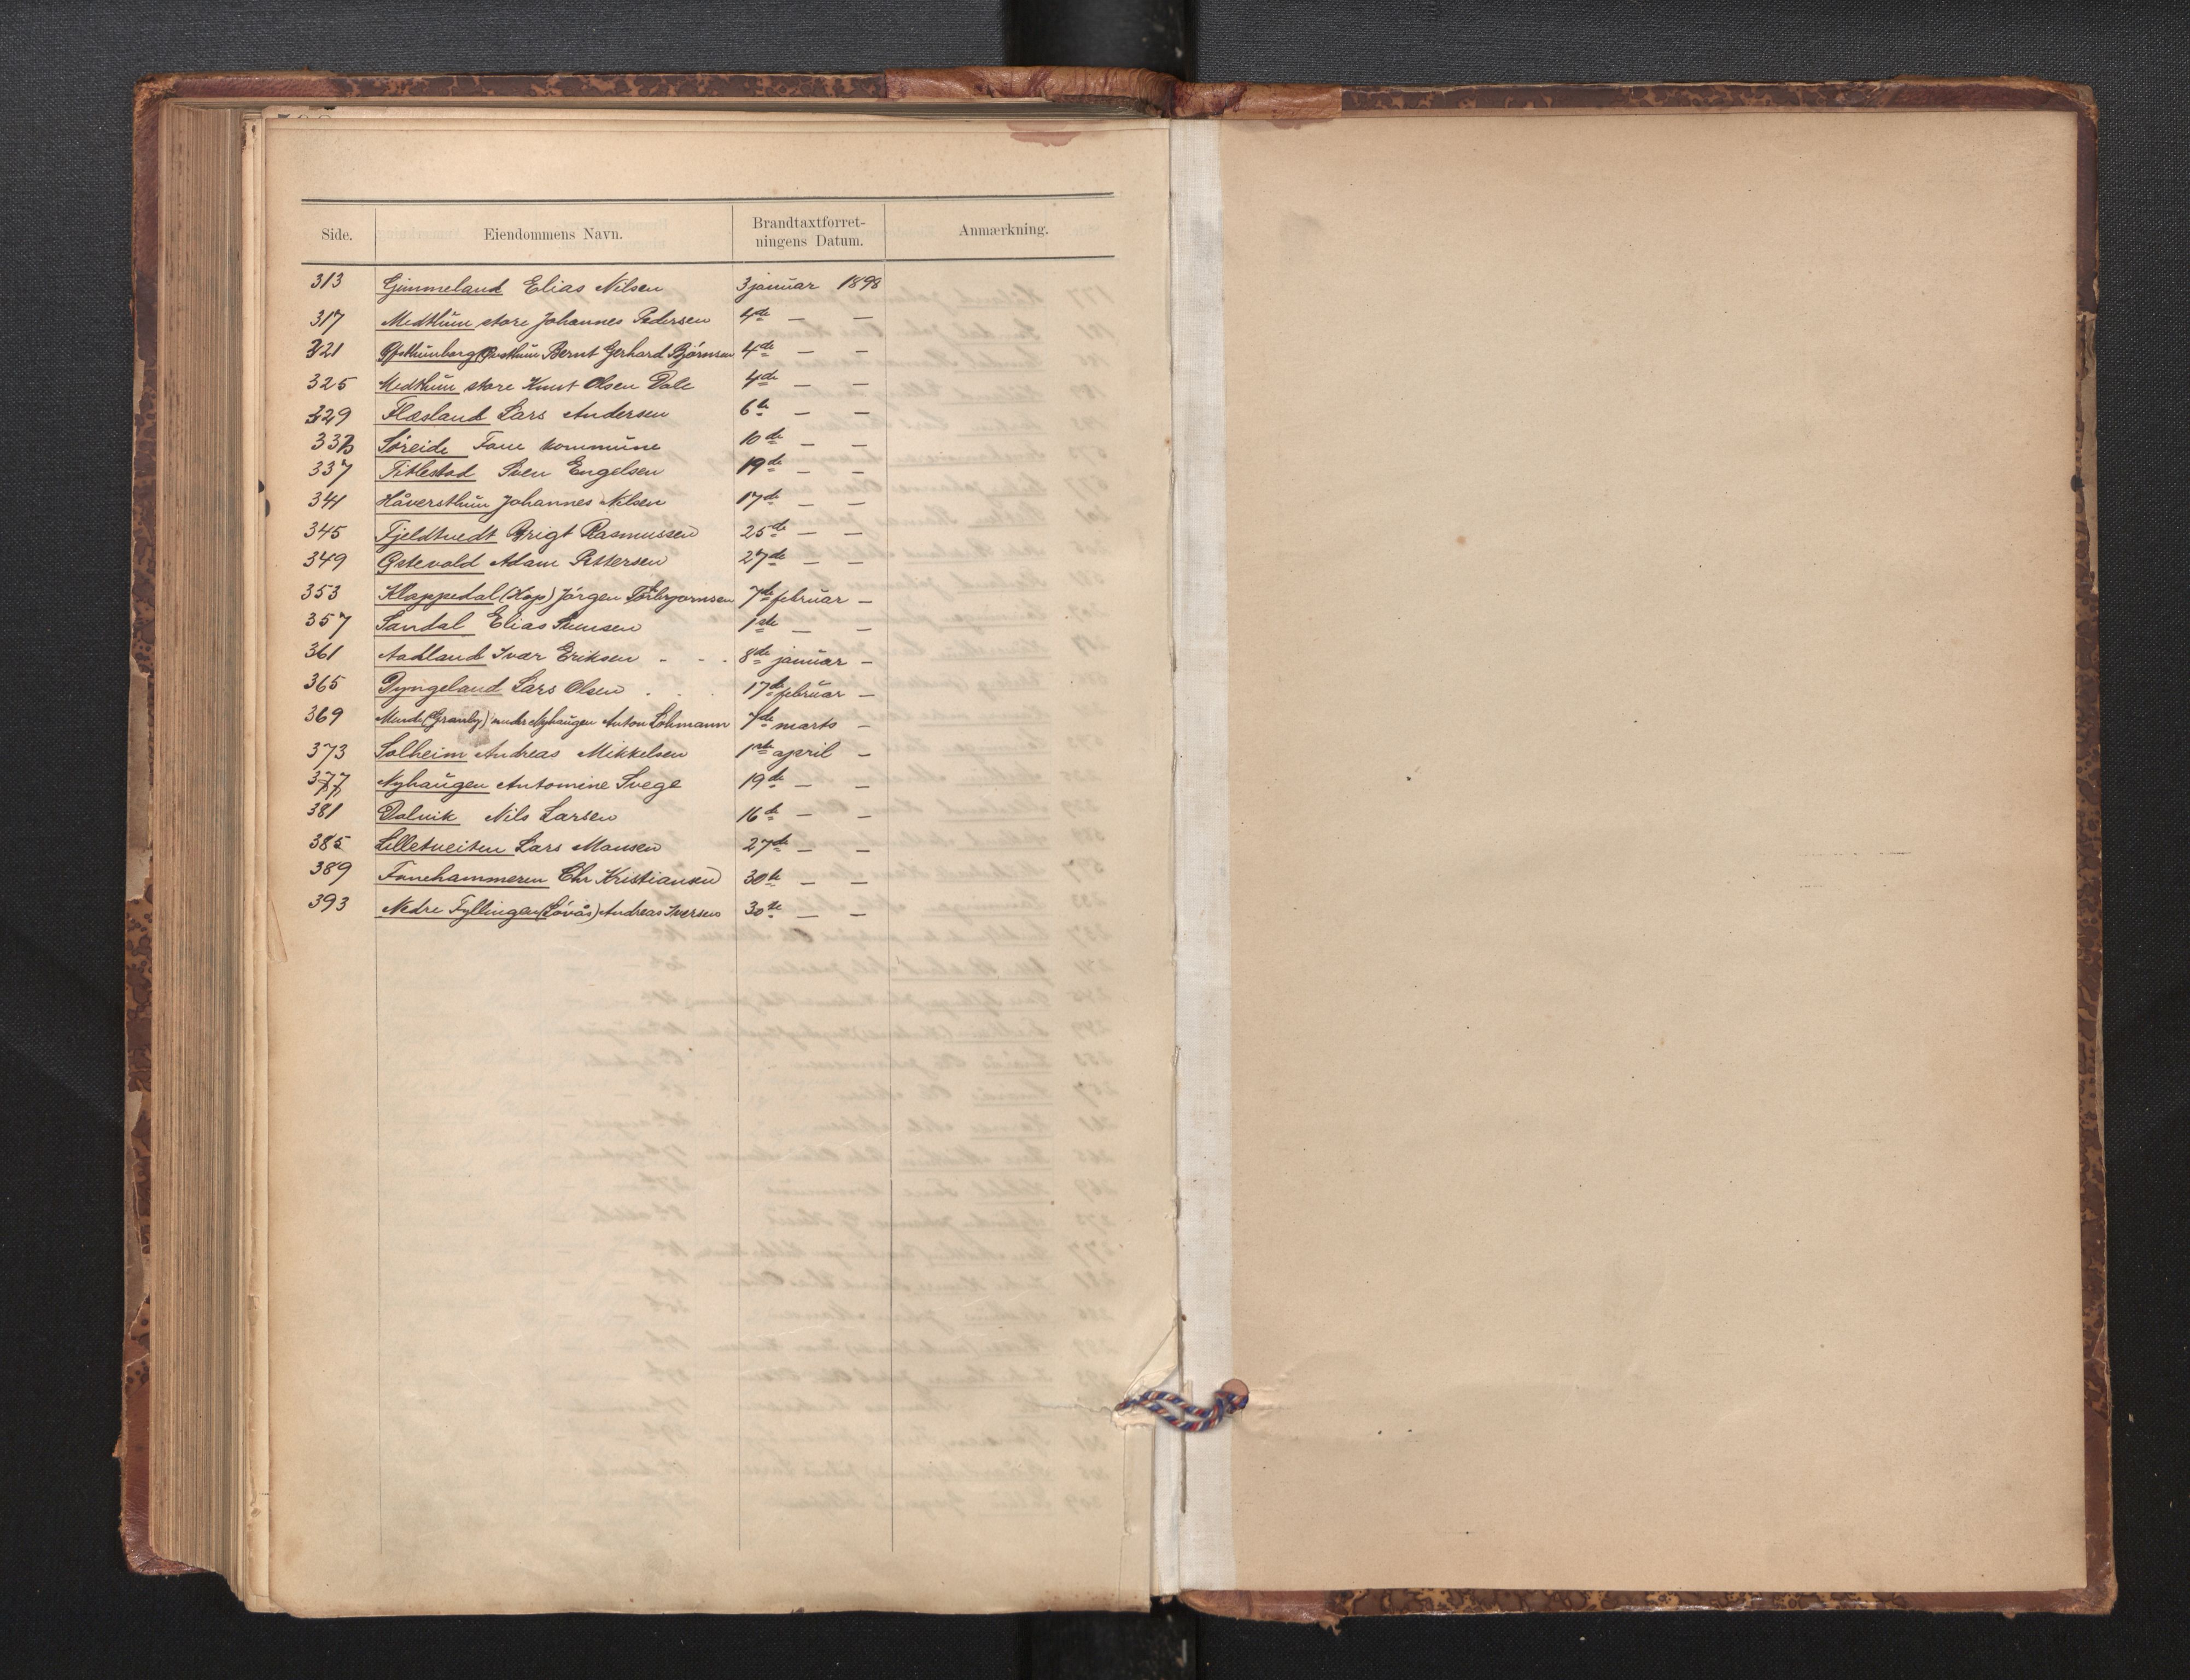 Side. Eiendommens Navn. Brandtaxtforret-
ningens Datum. Anmærkning.
313 Gjimmeland Elias Nilsen 3 januar 1898
317 Midthun store Johannes Pedersen 4de — —
321 Bernt Gerhard Björnsen 4de — —
325 Midthun store Knut Olsen Dale 4de — —
329 Flæsland Lars Andersen 6te — —
333 Söreide Fane kommune 10de — —
337 Titlestad Sven Engelsen 19de — —
341 Håversthun Johannes Nilsen 17de — —
345 Fjeldtvedt Brigt Rasmussen 25de — —
349 Östevold Adam Pettersen 27de — —
353 Klappedal (Hop) Jörgen Torbjornsen 7de februar —
357 Sandal Elias 1ste — —
361 Aadland Ivar Eriksen - - - 8de januar —
365 Dyngeland Lars Olsen . . 17de februar —
369 Minde (Granly) Nyhaugen Anton Lohmann 7de marts —
373 Solheim Andreas Mikkelsen 1ste april —
377 Nyhaugen Antomine Svege 19de — —
381 Dalvik Nils Larsen 16de — —
385 Lilletveiten Lars Monsen 27de — —
389 Fanehammeren Chr Kristiansen 30te — —
393 Nedre Fyllingen (Lövås) Andreas Iversen 30te — —